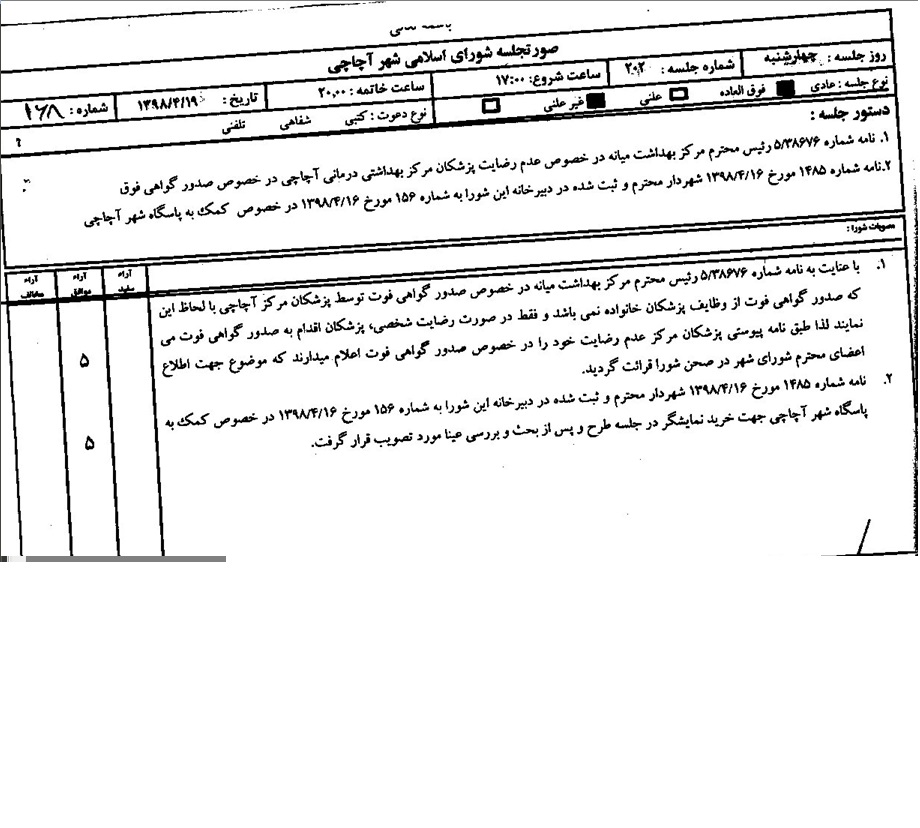 باسمه تعالی
صورتجلسه شورای اسلامی شهر آچاچی
روز جلسه : چهارشنبه شماره جلسه : ۲۰۲ ساعت شروع: ۱۷:۰۰ ساعت خاتمه : ۲۰:۰۰ تاریخ : ۱۳۹۸/۴/۱۹ شماره : ۱۶۸
نوع جلسه : عادی فوق العاده علنی غیر علنی نوع دعوت : کتبی شفاهی تلفنی
دستور جلسه :
۱. نامه شماره ۵/۳۸۶۷۶ رئیس محترم مرکز بهداشت میانه در خصوص عدم رضایت پزشکان مرکز بهداشتی درمانی آچاچی در خصوص صدور گواهی فوق
۲.نامه شماره ۱۴۸۵ مورخ ۱۳۹۸/۴/۱۶ شهردار محترم و ثبت شده در دبیرخانه این شورا به شماره ۱۵۶ مورخ ۱۳۹۸/۴/۱۶ در خصوص کمک به پاسگاه شهر آچاچی
مصوبات شورا :
آراء سفید آراء موافق آراء مخالف
۱. با عنایت به نامه شماره ۵/۳۸۶۷۶ رئیس محترم مرکز بهداشت میانه در خصوص صدور گواهی فوت توسط پزشکان مرکز آچاچی با لحاظ این
که صدور گواهی فوت از وظایف پزشکان خانواده نمی باشد و فقط در صورت رضایت شخصی، پزشکان اقدام به صدور گواهی فوت می
نمایند لذا طبق نامه پیوستی پزشکان مرکز عدم رضایت خود را در خصوص صدور گواهی فوت اعلام میدارند که موضوع جهت اطلاع
اعضای محترم شورای شهر در صحن شورا قرائت گردید.
۵
۲. نامه شماره ۱۴۸۵ مورخ ۱۳۹۸/۴/۱۶ شهردار محترم و ثبت شده در دبیرخانه این شورا به شماره ۱۵۶ مورخ ۱۳۹۸/۴/۱۶ در خصوص کمک به
پاسگاه شهر آچاچی جهت خرید نمایشگر در جلسه طرح و پس از بحث و بررسی عینا مورد تصویب قرار گرفت.
۵